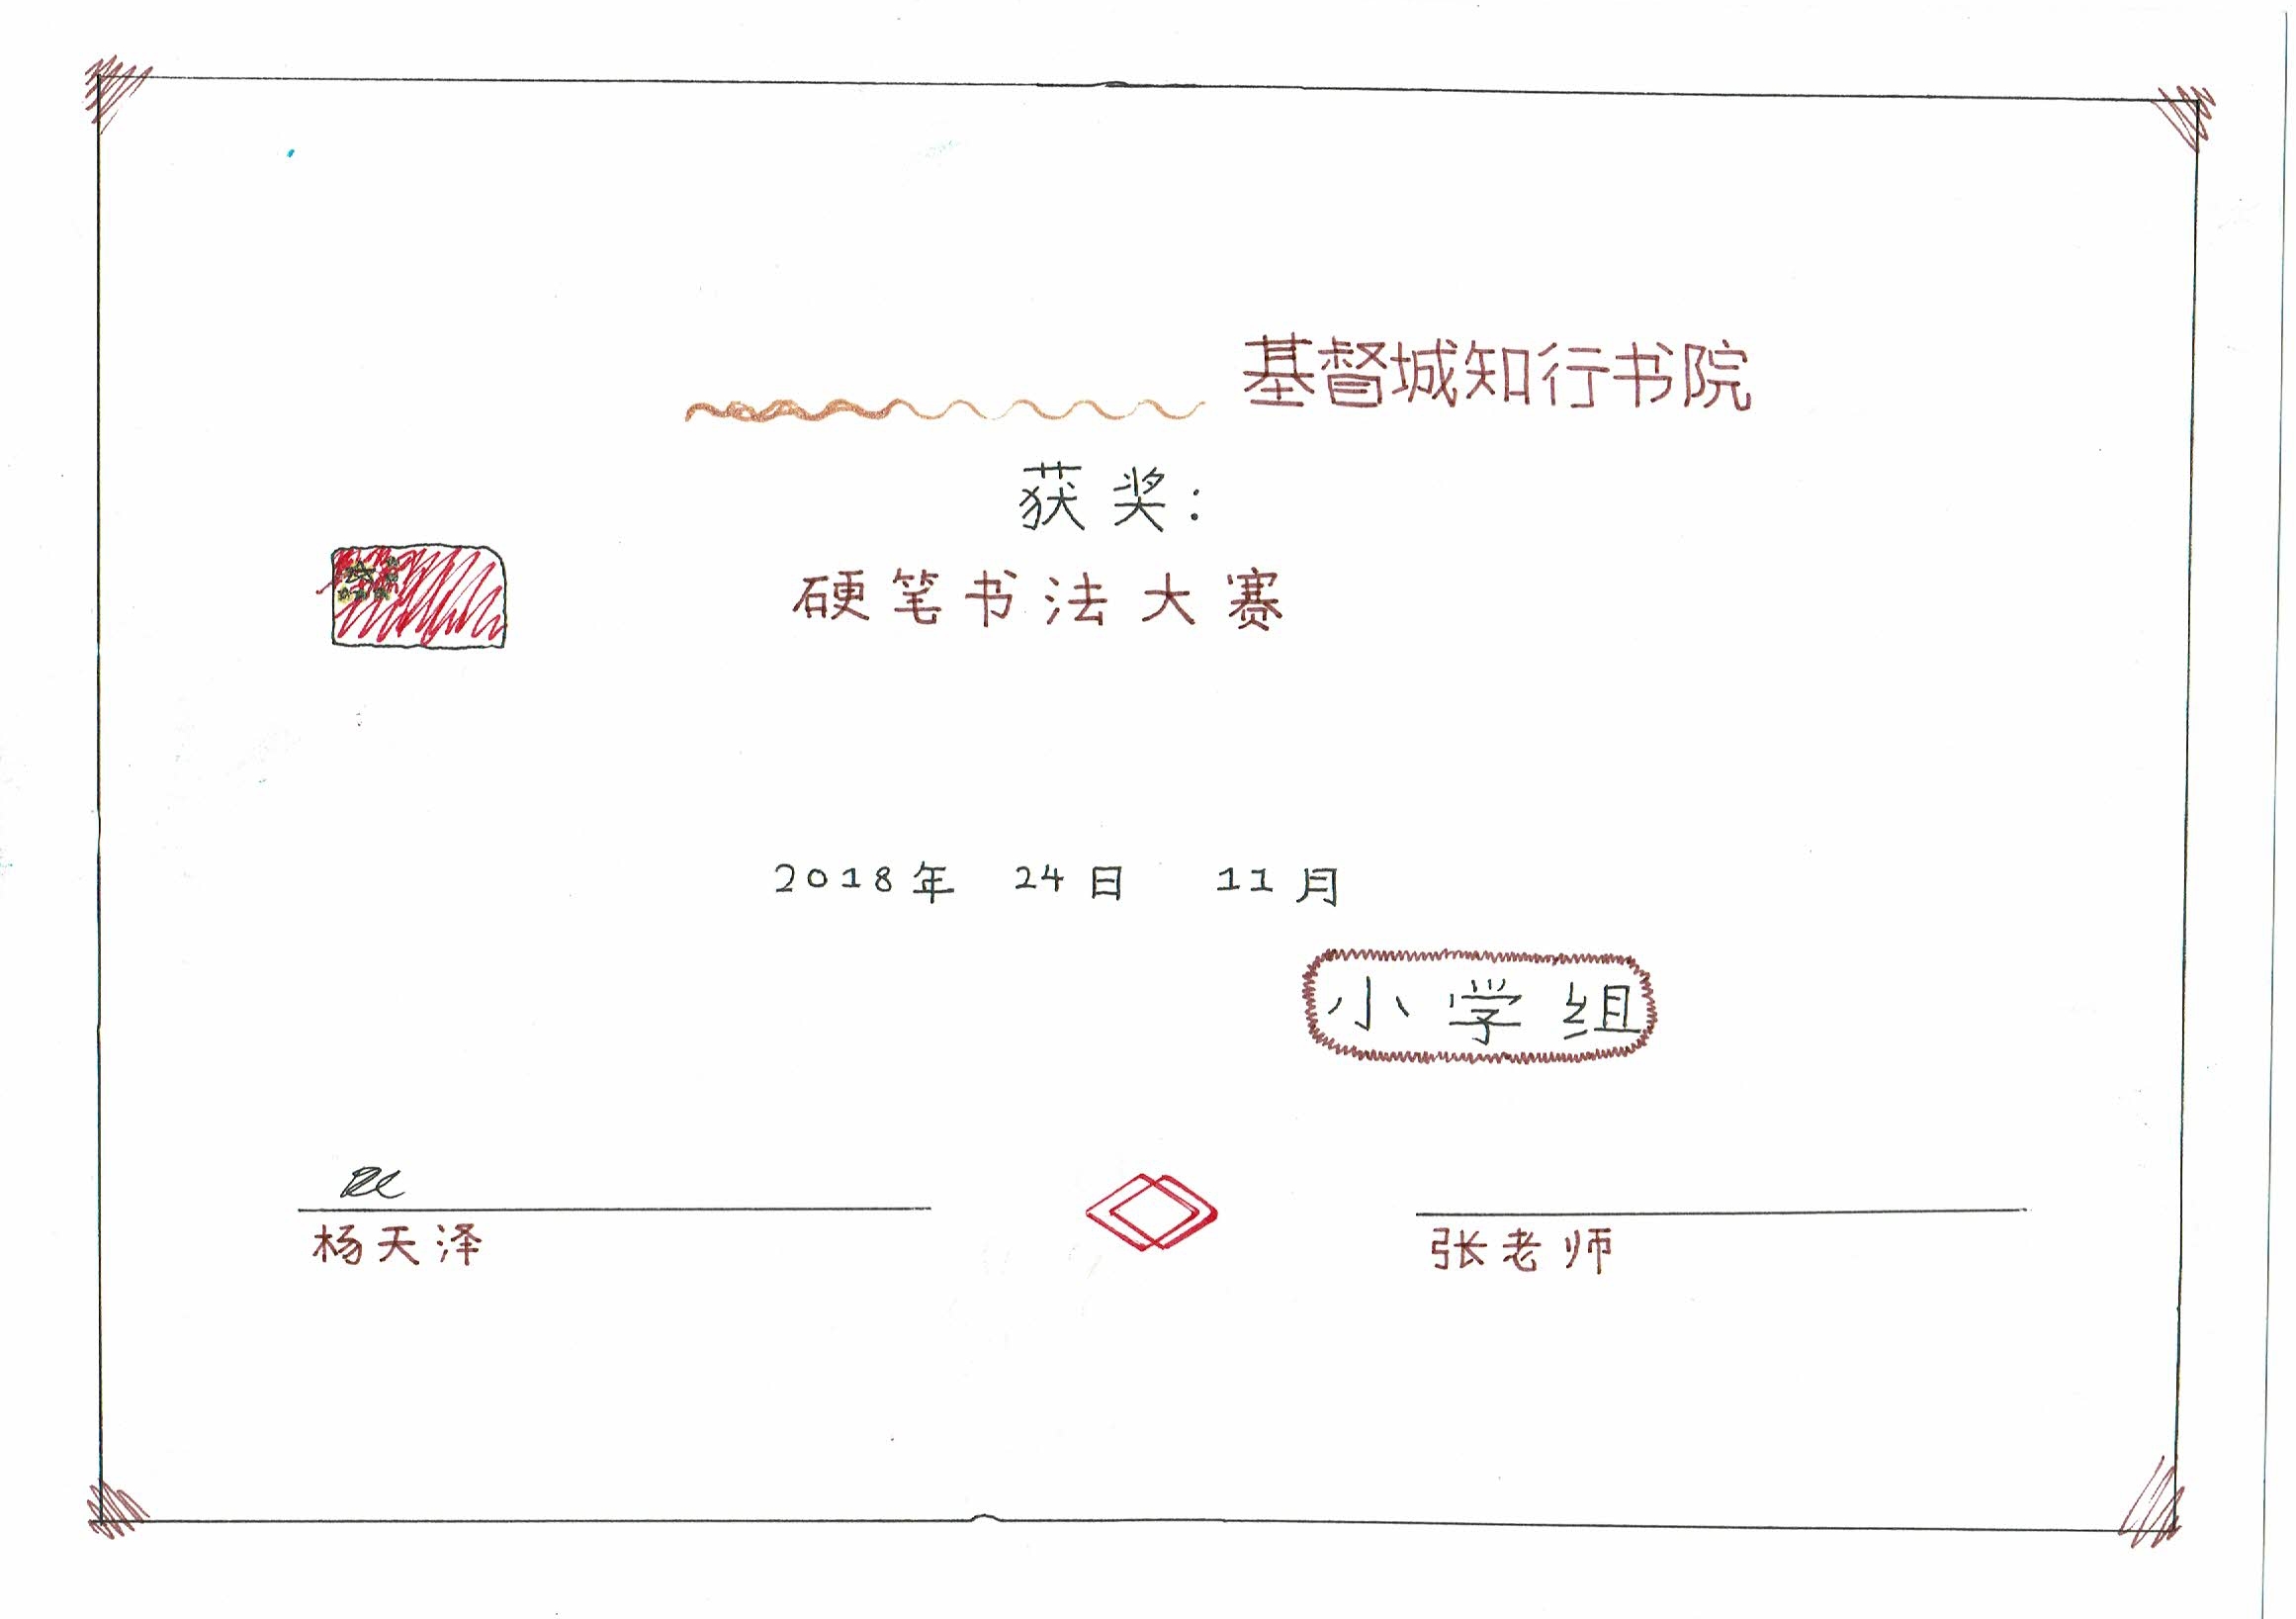 基督城知行书院
获奖:
硬笔书法大赛
2018年 24日 11月
小学组
杨天泽
张老师